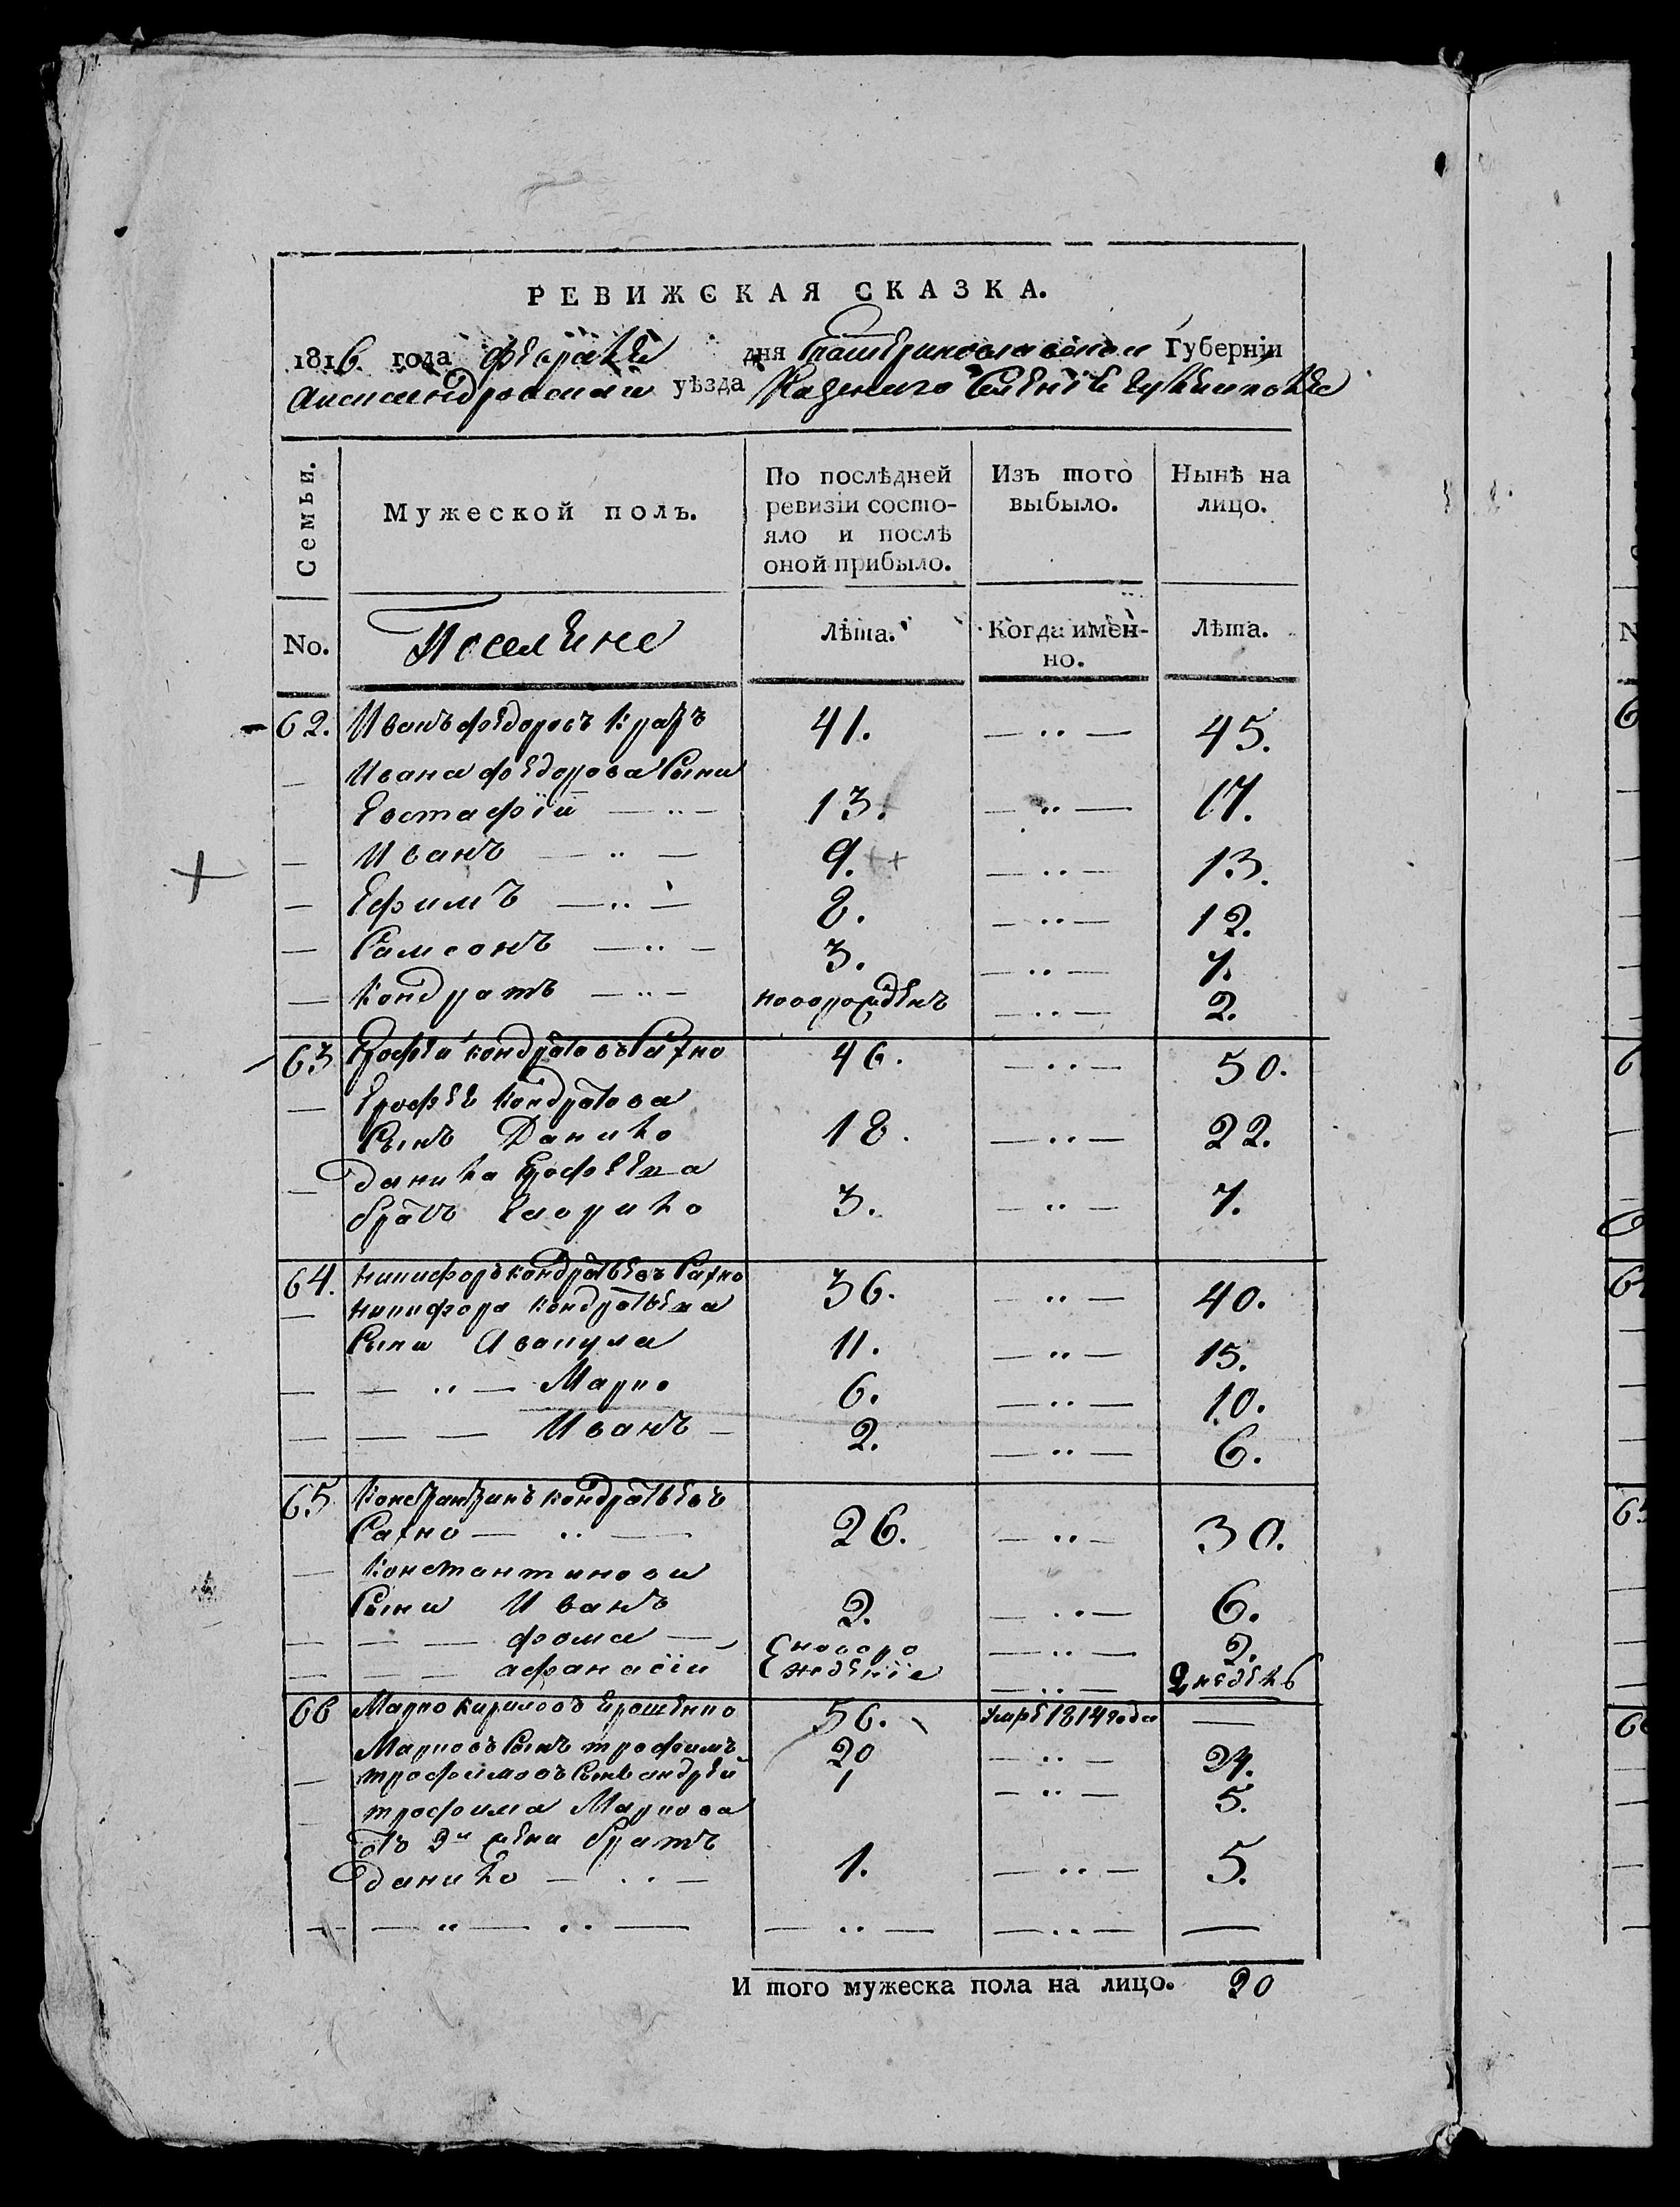 РЕВИЖСКАЯ СКАЗКА.
1816 года февраля дня Екатеринославской Губерніи
Александровскаго уѣзда Казеннаго Селенія
Семьи. Мужеской полъ. По послѣдней ревизіи состояло и послѣ оной прибыло. Изъ того выбыло. Нынѣ на лицо.
No. Поселяне Лѣта. Когда именно. Лѣта.
62. Иванъ Федоровъ 41. — „ — 45.
— Ивана Федорова Сыни
Евстафій — „ — 13. — „ — 17.
— Иванъ — „ — 9. — „ — 13.
— Ефимъ — „ — 8. — „ — 12.
— Самсонъ — „ — 3. — „ — 7.
— Кондратъ — „ — новорожденъ — „ — 2.
63 Ерофей Кондратовъ Сахно 46. — „ — 50.
— Ерофея Кондратова
Сынъ Данило 18. — „ — 22.
— Данила Ерофеева
братъ Гаврило 3. — „ — 7.
64. Никифоръ Кондратьевъ Сахно 36. — „ — 40.
— Никифора Кондратьева
Сыни Авакула 11. — „ — 15.
— — „ — Марко 6. — „ — 10.
— — — Иванъ — 2. — „ — 6.
65 Константинъ Кондратьевъ
Сахно — „ — 26. — „ — 30.
— Константинови
Сыни Иванъ 2. — „ — 6.
— — — Фома — новоро — „ — 2.
— — — Афанасій жденіе — „ — 2 недель
66 Марко Кириловъ Ерошенко 56. умре 1814 года —
Марковъ Сынъ Трофимъ 20 — „ — 24.
— Трофимовъ Сынъ Андрей 1 — „ — 5.
— Трофима Маркова
отъ 2й жени братъ
Данило — „ — 1. — „ — 5.
— — „ — „ — — „ — — „ — —
И того мужеска пола на лицо. 20